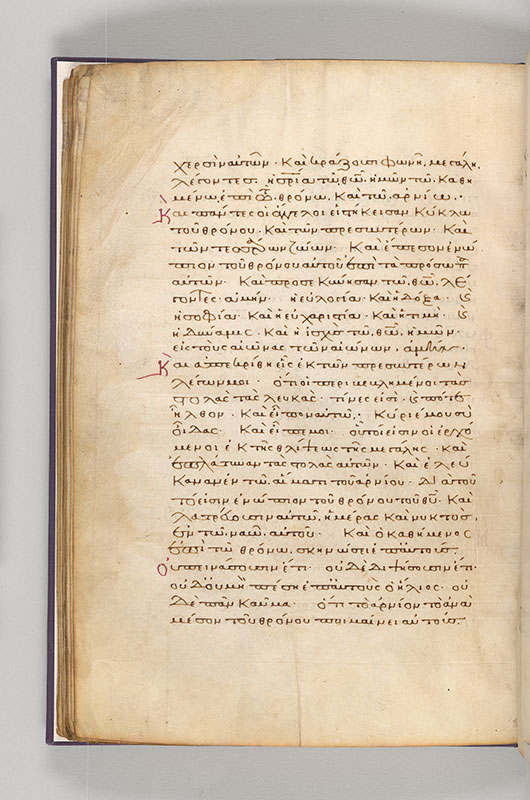 χερσὶν αὐτῶν· καὶ κράζουσι φωνῆ μεγάλη,
λέγοντες· ἡ σρία τῶ θῶ ἡμῶν τῶ καθη
μένω ἐπὶ τοῦ θρόνου, καὶ τῶ ἀρνίω·
Καὶ πάντες οἱ ἄγγελοι εἱστήκεισαν κύκλω
τοῦ θρόνου· καὶ τῶν πρεσβυτέρων· καὶ
τῶν τεσσάρων ζώων· καὶ ἔπεσον ἐνώ
πιον τοῦ θρόνου αὐτοῦ ἐπὶ τὰ πρόσωπα
αὐτῶν· καὶ προσεκύνησαν τῶ θῶ, λέ
γοντες· ἀμήν· ἡ εὐλογία καὶ ἡ δόξα· καὶ
ἡ σοφία· καὶ ἡ εὐχαριστία· καὶ ἡ τιμὴ· καὶ
ἡ δύναμις· καὶ ἡ ἰσχὺς τῶ θῶ ἡμῶν·
εἰς τοὺς αἰῶνας τῶν αἰώνων, ἀμήν·
Καὶ ἀπεκρίθη εἷς ἐκ τῶν πρεσβυτέρων
λέγων μοι· ὅτι οἱ περιβεβλημένοι τὰς
στολὰς τὰς λευκὰς· τίνες εἰσὶ· καὶ πόθεν
ἦλθον· καὶ εἶπον αὐτῶ· κύριέ μου σὺ
οἶδας· καὶ εἶπέ μοι· οὗτοί εἰσιν οἱ ἐρχό
μενοι ἐκ τῆς θλίψεως τῆς μεγάλης· καὶ
ἐπλάτυναν τὰς στολὰς αὐτῶν· καὶ ἐλεύ
καναν ἐν τῶ αἵματι τοῦ ἀρνίου· διατοῦ
τό εἰσιν ἐνώπιον τοῦ θρόνου τοῦ θυ· καὶ
λατρεύουσιν αὐτῶ, ἡμέρας καὶ νυκτὸς,
ἐν τῶ ναῶ αὐτοῦ· καὶ ὁ καθήμενος
ἐπὶ τῶ θρόνω, σκηνώσει ἐπ αὐτούς·
Οὐ πεινάσουσιν ἔτι· οὐδὲ διψήσουσιν ἔτι·
οὐδ οὐ μὴ πέση ἐπ αὐτοὺς ὁ ἥλιος· οὐ
δὲ πᾶν καῦμα· ὅτι τὸ ἀρνίον τὸ ἀνὰ
μέσον τοῦ θρόνου ποιμαίνει αὐτούς·